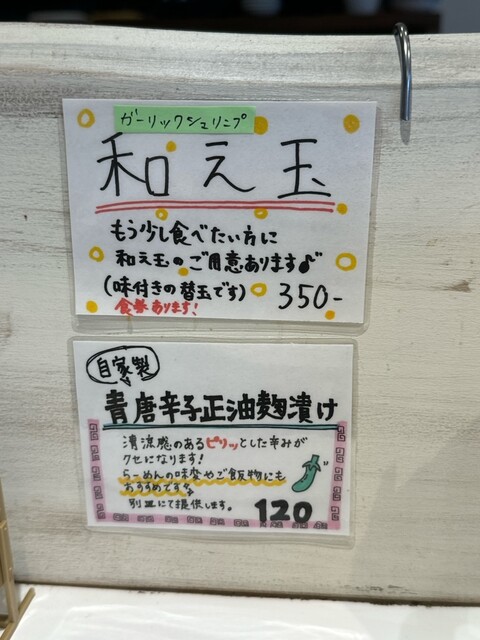 ガーリックシュリンプ
和え玉
もう少し食べたい方に
和え玉のご用意あります♪
(味付きの替玉です) 350-
食券あります!
自家製
青唐辛子正油麹漬け
清涼感のあるピリッとした辛みが
クセになります!
らーめんの味変やご飯物にも
おすすめです
別皿にて提供します。 120